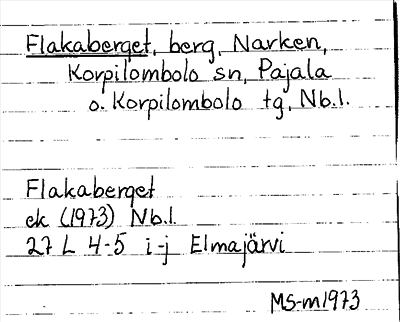 Flakaberget, berg, Narken,
Korpilombolo sn, Pajala
o. Korpilombolo tg, Nb.l.
Flakaberget
ek (1973) Nb.l.
27 L 4-5 i-j Elmajärvi
MS-m1973